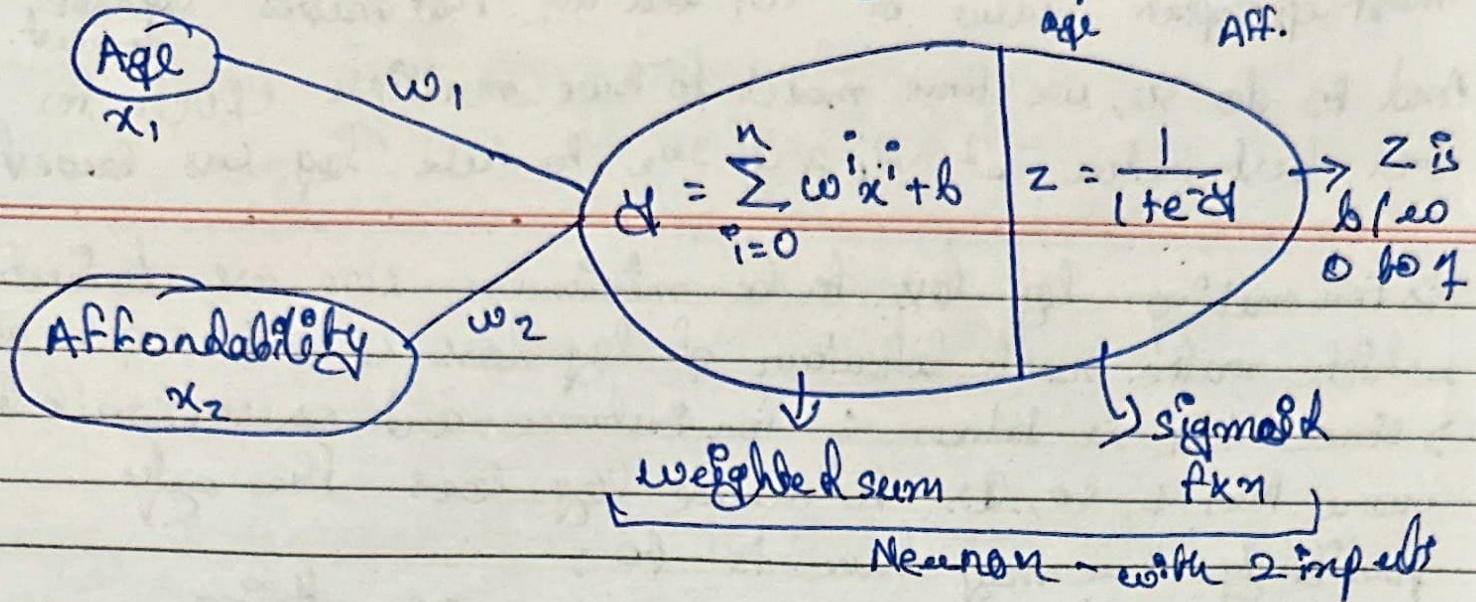 age Aff.
Age
x₁
w₁
y = Σ wⁱxⁱ + b
n
i=0
z = 1 / 1+e^-y
→ z is
b/w
0 to 1
Affordability
x₂
w₂
weighted sum
sigmoid
fxn
Neuron - with 2 inputs